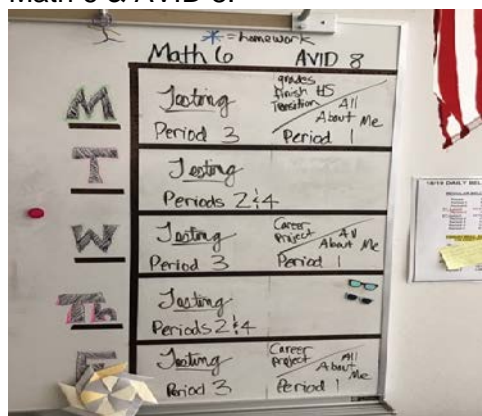 Math 6 & AVID 8.
* = homework
Math 6 AVID 8
M
Testing
Period 3
grades
finish HS
Transition / All
About Me
Period 1
T
Testing
Periods 2 & 4
W
Testing
Period 3
Career
Project / All
About Me
Period 1
Th
Testing
Periods 2 & 4
F
Testing
Period 3
Career
Project / All
About Me
Period 1
18/19 DAILY BEL